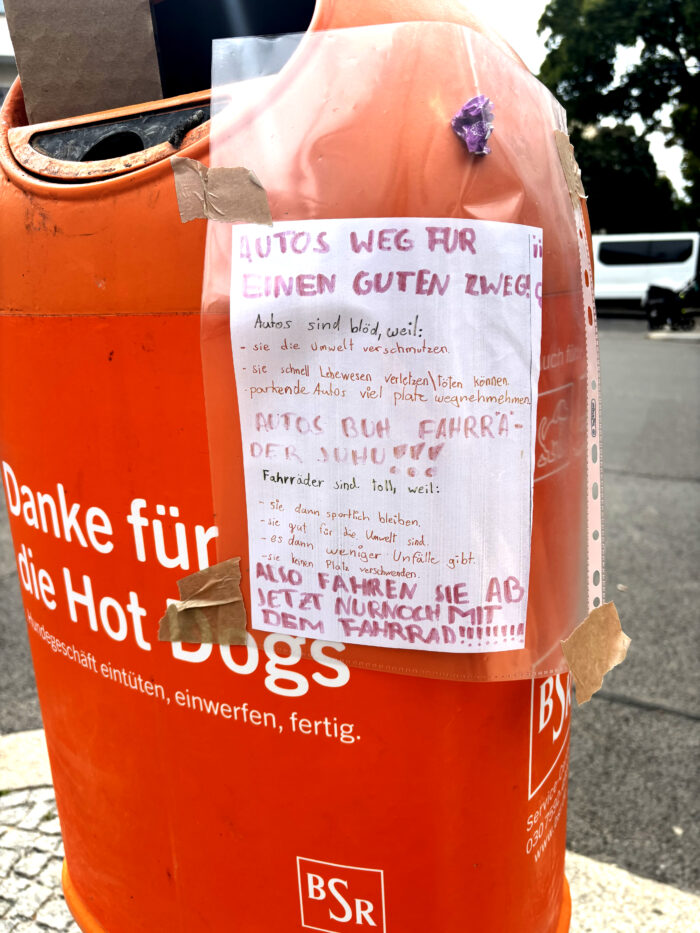 AUTOS WEG FÜR
EINEN GUTEN ZWEG!
Autos sind blöd, weil:
- sie die Umwelt verschmutzen.
- sie schnell Lebewesen verletzen\töten können.
- parkende Autos viel platz wegnehmehmen
AUTOS BUH FAHRRÄ-
DER JUHU!!!
Fahrräder sind toll, weil:
- sie dann sportlich bleiben.
- sie gut für die Umwelt sind.
- es dann weniger Unfälle gibt.
- sie keinen Platz verschwenden.
ALSO FAHREN SIE AB
JETZT NURNOCH MIT
DEM FAHRRAD!!!!!!!!
Danke für
die Hot Dogs
Hundegeschäft eintüten, einwerfen, fertig.
BSR
Service-
030 7592
www.
BSR